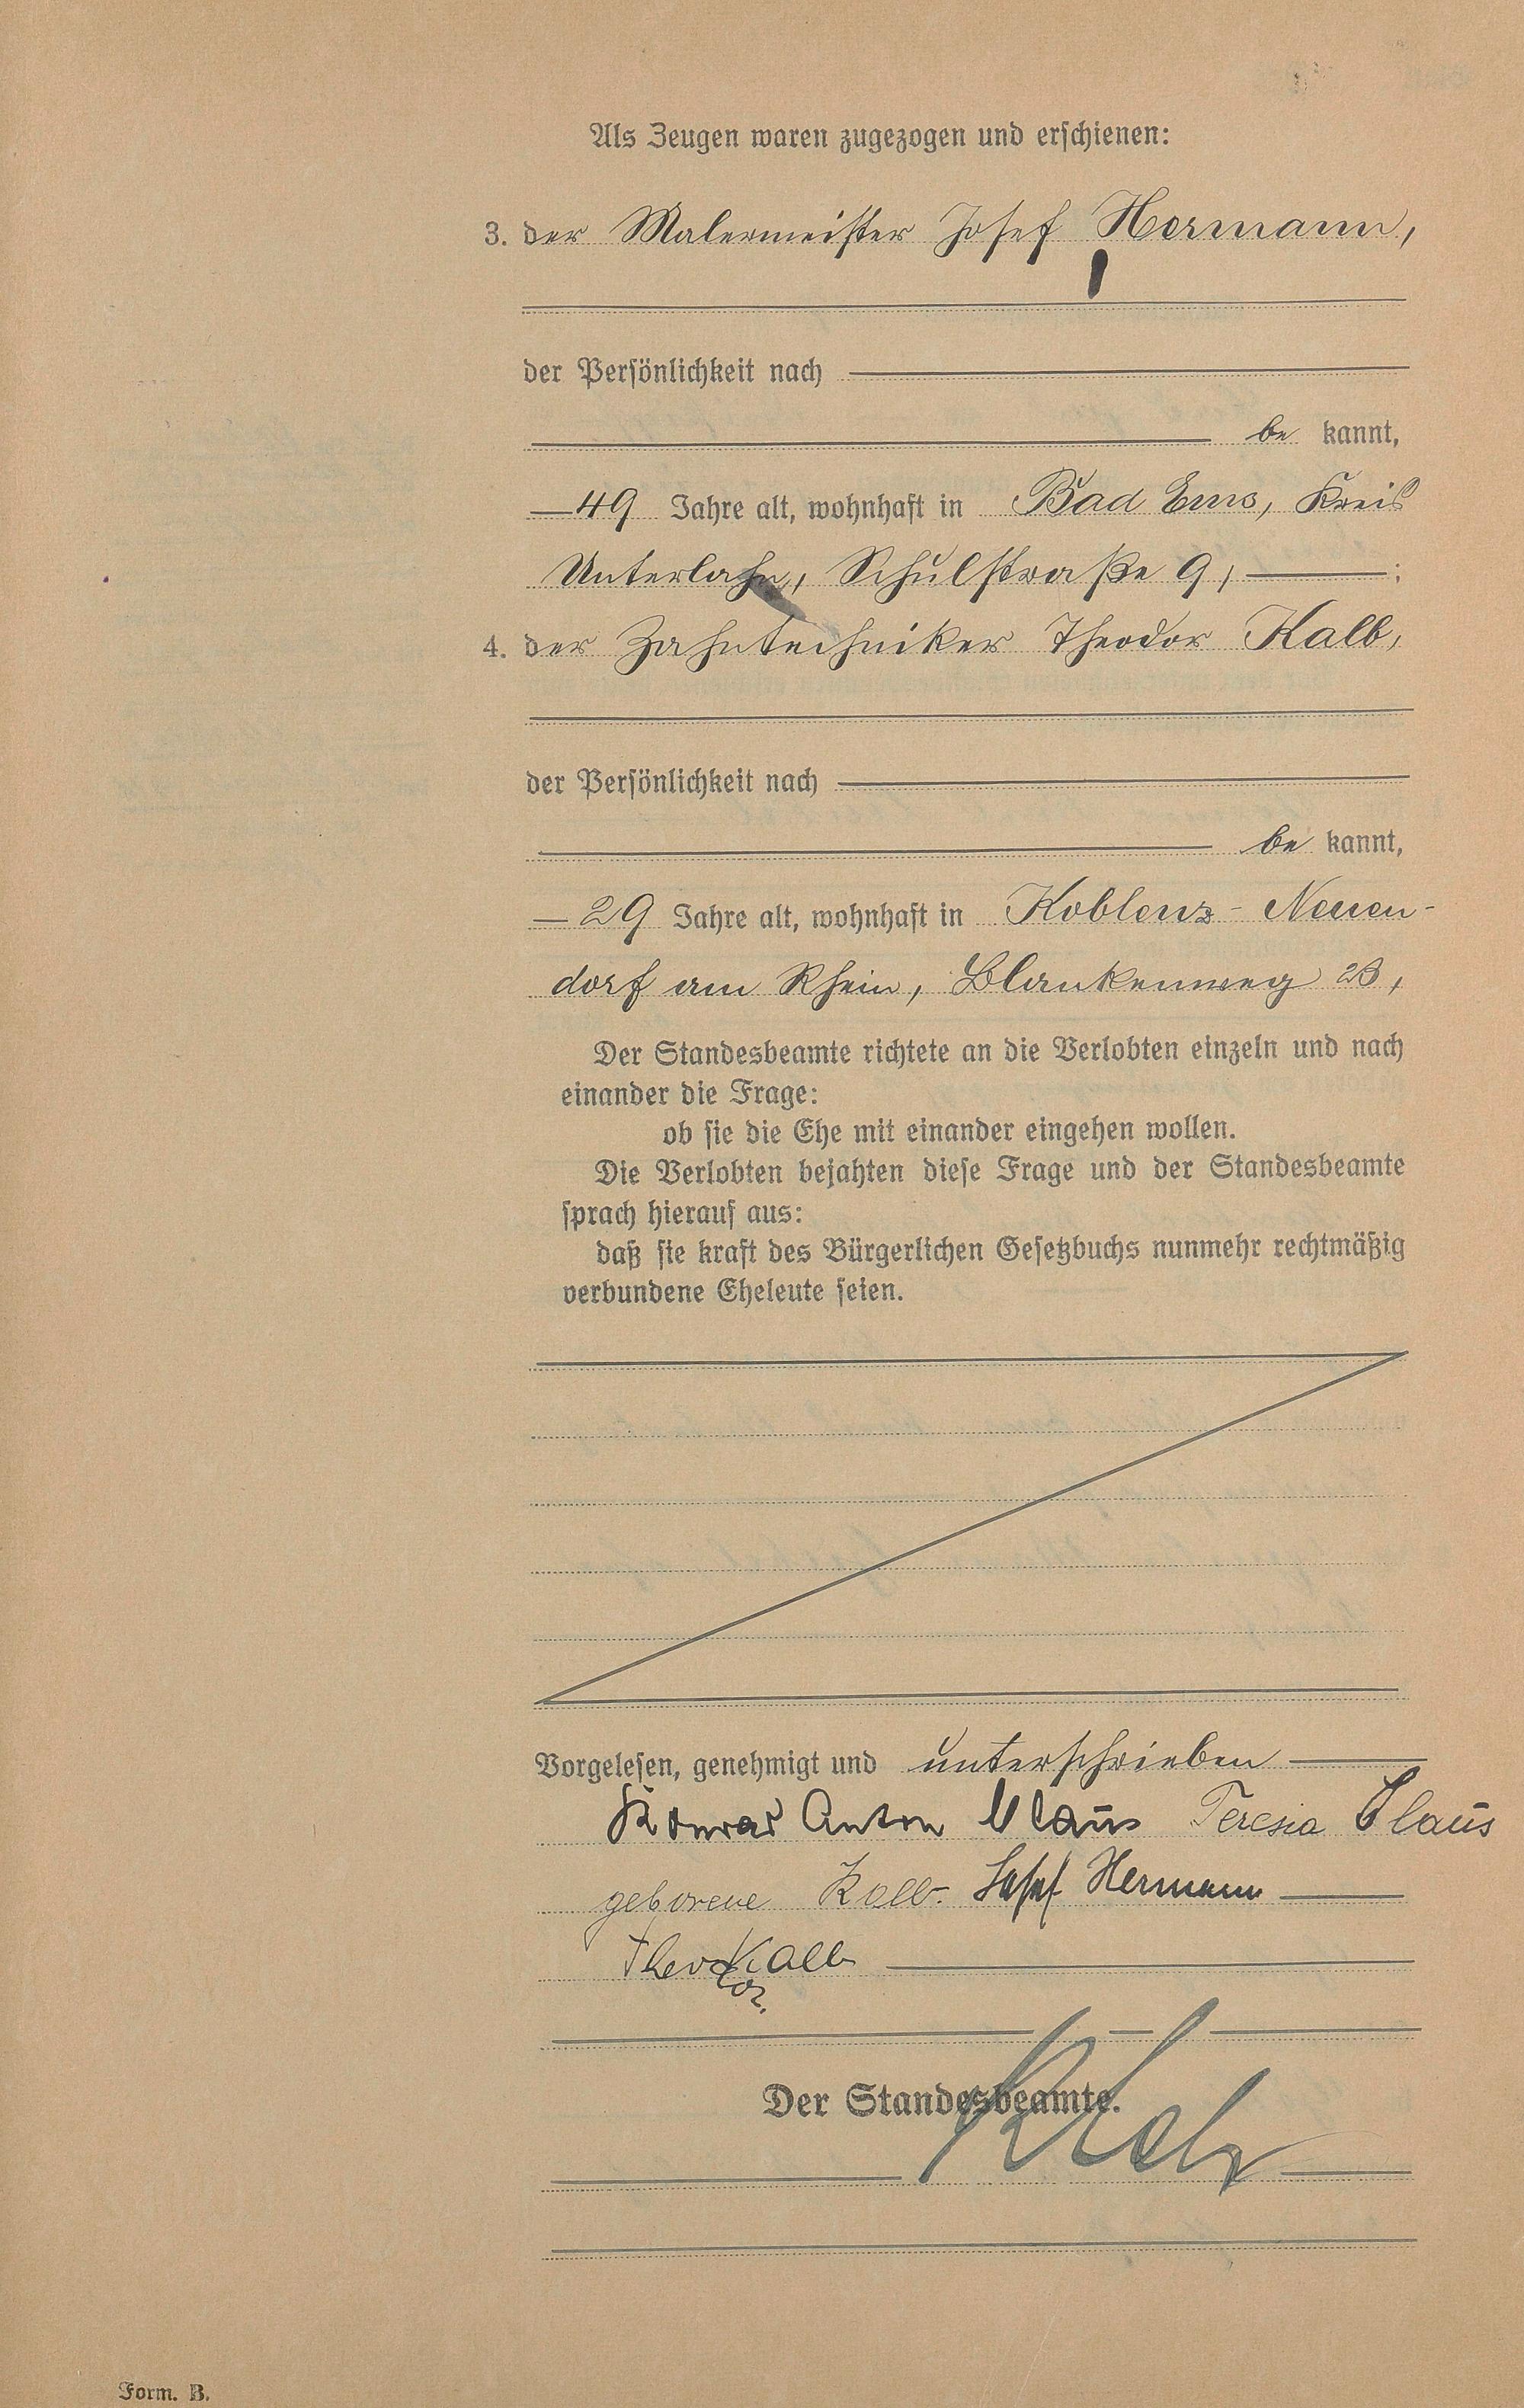 Als Zeugen waren zugezogen und erschienen:
3. der Malermeister Josef Hermann,
der Persönlichkeit nach
be kannt,
49 Jahre alt, wohnhaft in Bad Ems, Kreis
Unterlahn, Schulstraße 9, ;
4. der Zahntechniker Theodor Kalb,
der Persönlichkeit nach
be kannt,
29 Jahre alt, wohnhaft in Koblenz-Neuen-
dorf am Rhein, Blankenweg
Der Standesbeamte richtete an die Verlobten einzeln und nach
einander die Frage:
ob sie die Ehe mit einander eingehen wollen.
Die Verlobten bejahten diese Frage und der Standesbeamte
sprach hierauf aus:
daß sie kraft des Bürgerlichen Gesetzbuchs nunmehr rechtmäßig
verbundene Eheleute seien.
Vorgelesen, genehmigt und unterschrieben
Konrad Anton Klaus Teresia Klaus
geborene Kalb. Josef Hermann
Theodor Kalb
Der Standesbeamte.
Form. B.